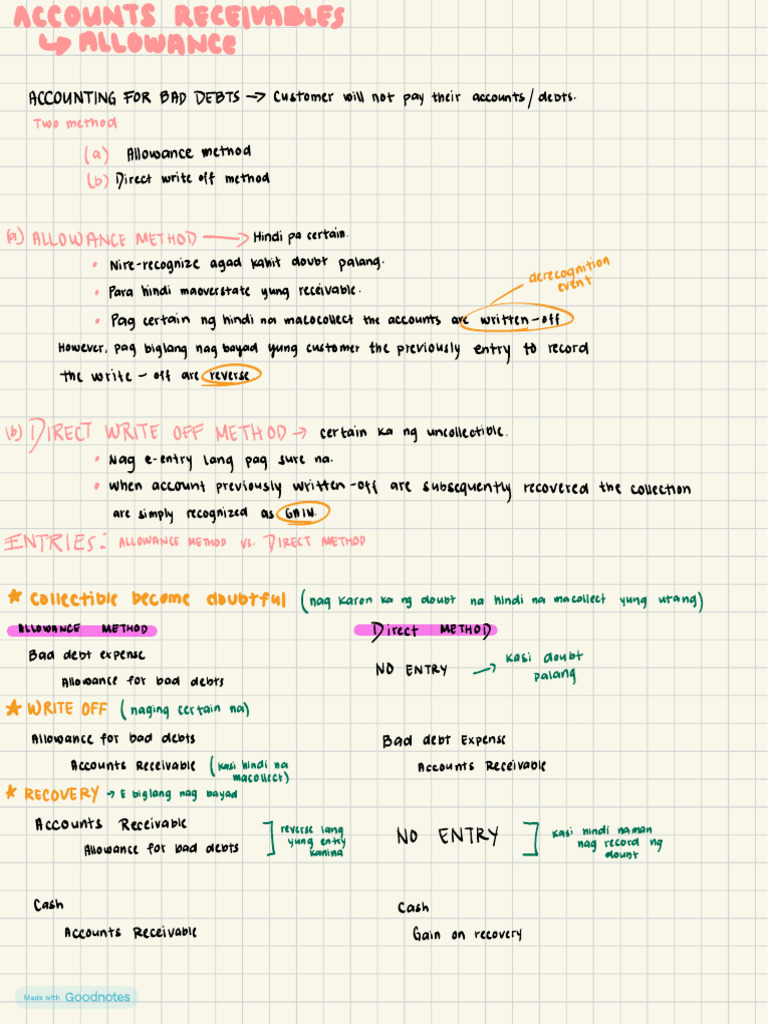 ACCOUNTS RECEIVABLES
↳ ALLOWANCE
ACCOUNTING FOR BAD DEBTS → Customer will not pay their accounts/debts.
Two method
(a) Allowance method
(b) Direct write off method
(a) ALLOWANCE METHOD → Hindi pa certain.
• Nire-recognize agad kahit doubt palang.
• Para hindi maoverstate yung receivable.
derecognition
event
• Pag certain ng hindi na macocollect the accounts are written-off
However, pag biglang nag bayad yung customer the previously entry to record
the write-off are reverse
(b) DIRECT WRITE OFF METHOD → certain ka ng uncollectible.
• Nag e-entry lang pag sure na.
• When account previously written-off are subsequently recovered the collection
are simply recognized as GAIN.
ENTRIES: ALLOWANCE METHOD VS. DIRECT METHOD
★ Collectible become doubtful (nag karon ka ng doubt na hindi na macollect yung utang)
ALLOWANCE METHOD
Direct METHOD
Bad debt expense
Allowance for bad debts
NO ENTRY → kasi doubt
palang
★ WRITE OFF (naging certain na)
Allowance for bad debts
Accounts Receivable (kasi hindi na
macollect)
Bad debt Expense
Accounts Receivable
★ RECOVERY → E biglang nag bayad
Accounts Receivable
Allowance for bad debts
reverse lang
yung entry
kanina
NO ENTRY
kasi hindi naman
nag record ng
dount
Cash
Accounts Receivable
Cash
Gain on recovery
Made with Goodnotes